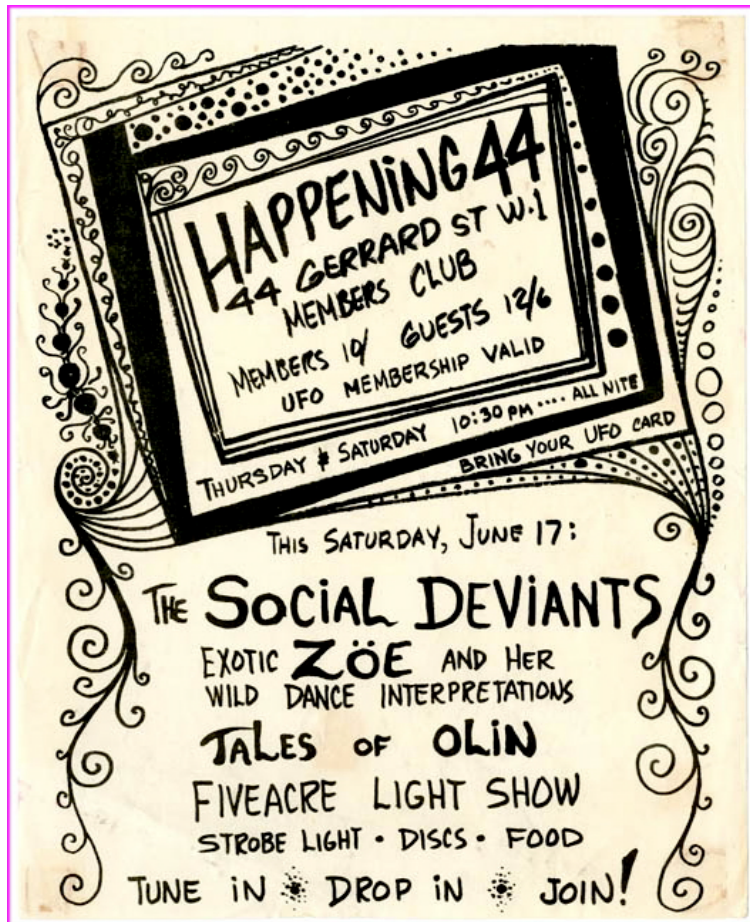 HAPPENiNG 44
44 GERRARD ST W.1
MEMBERS CLUB
MEMBERS 10/ GUESTS 12/6
UFO MEMBERSHIP VALID
THURSDAY & SATURDAY 10:30 PM .... ALL NITE
BRING YOUR UFO CARD
THIS SATURDAY, JUNE 17:
THE SOCiAL DEViANTS
EXOTIC ZÖE AND HER
WILD DANCE INTERPRETATIONS
TALES OF OLiN
FIVEACRE LIGHT SHOW
STROBE LIGHT · DISCS · FOOD
TUNE iN * DROP iN * JOiN!